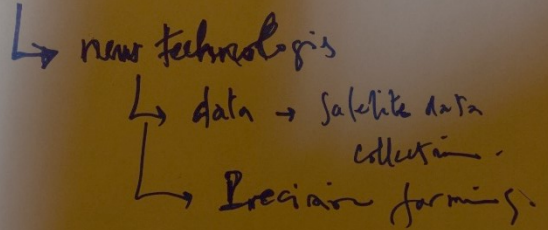 ↳ new technologis
↳ data → Satelite data
collection.
↳ Precision farming.